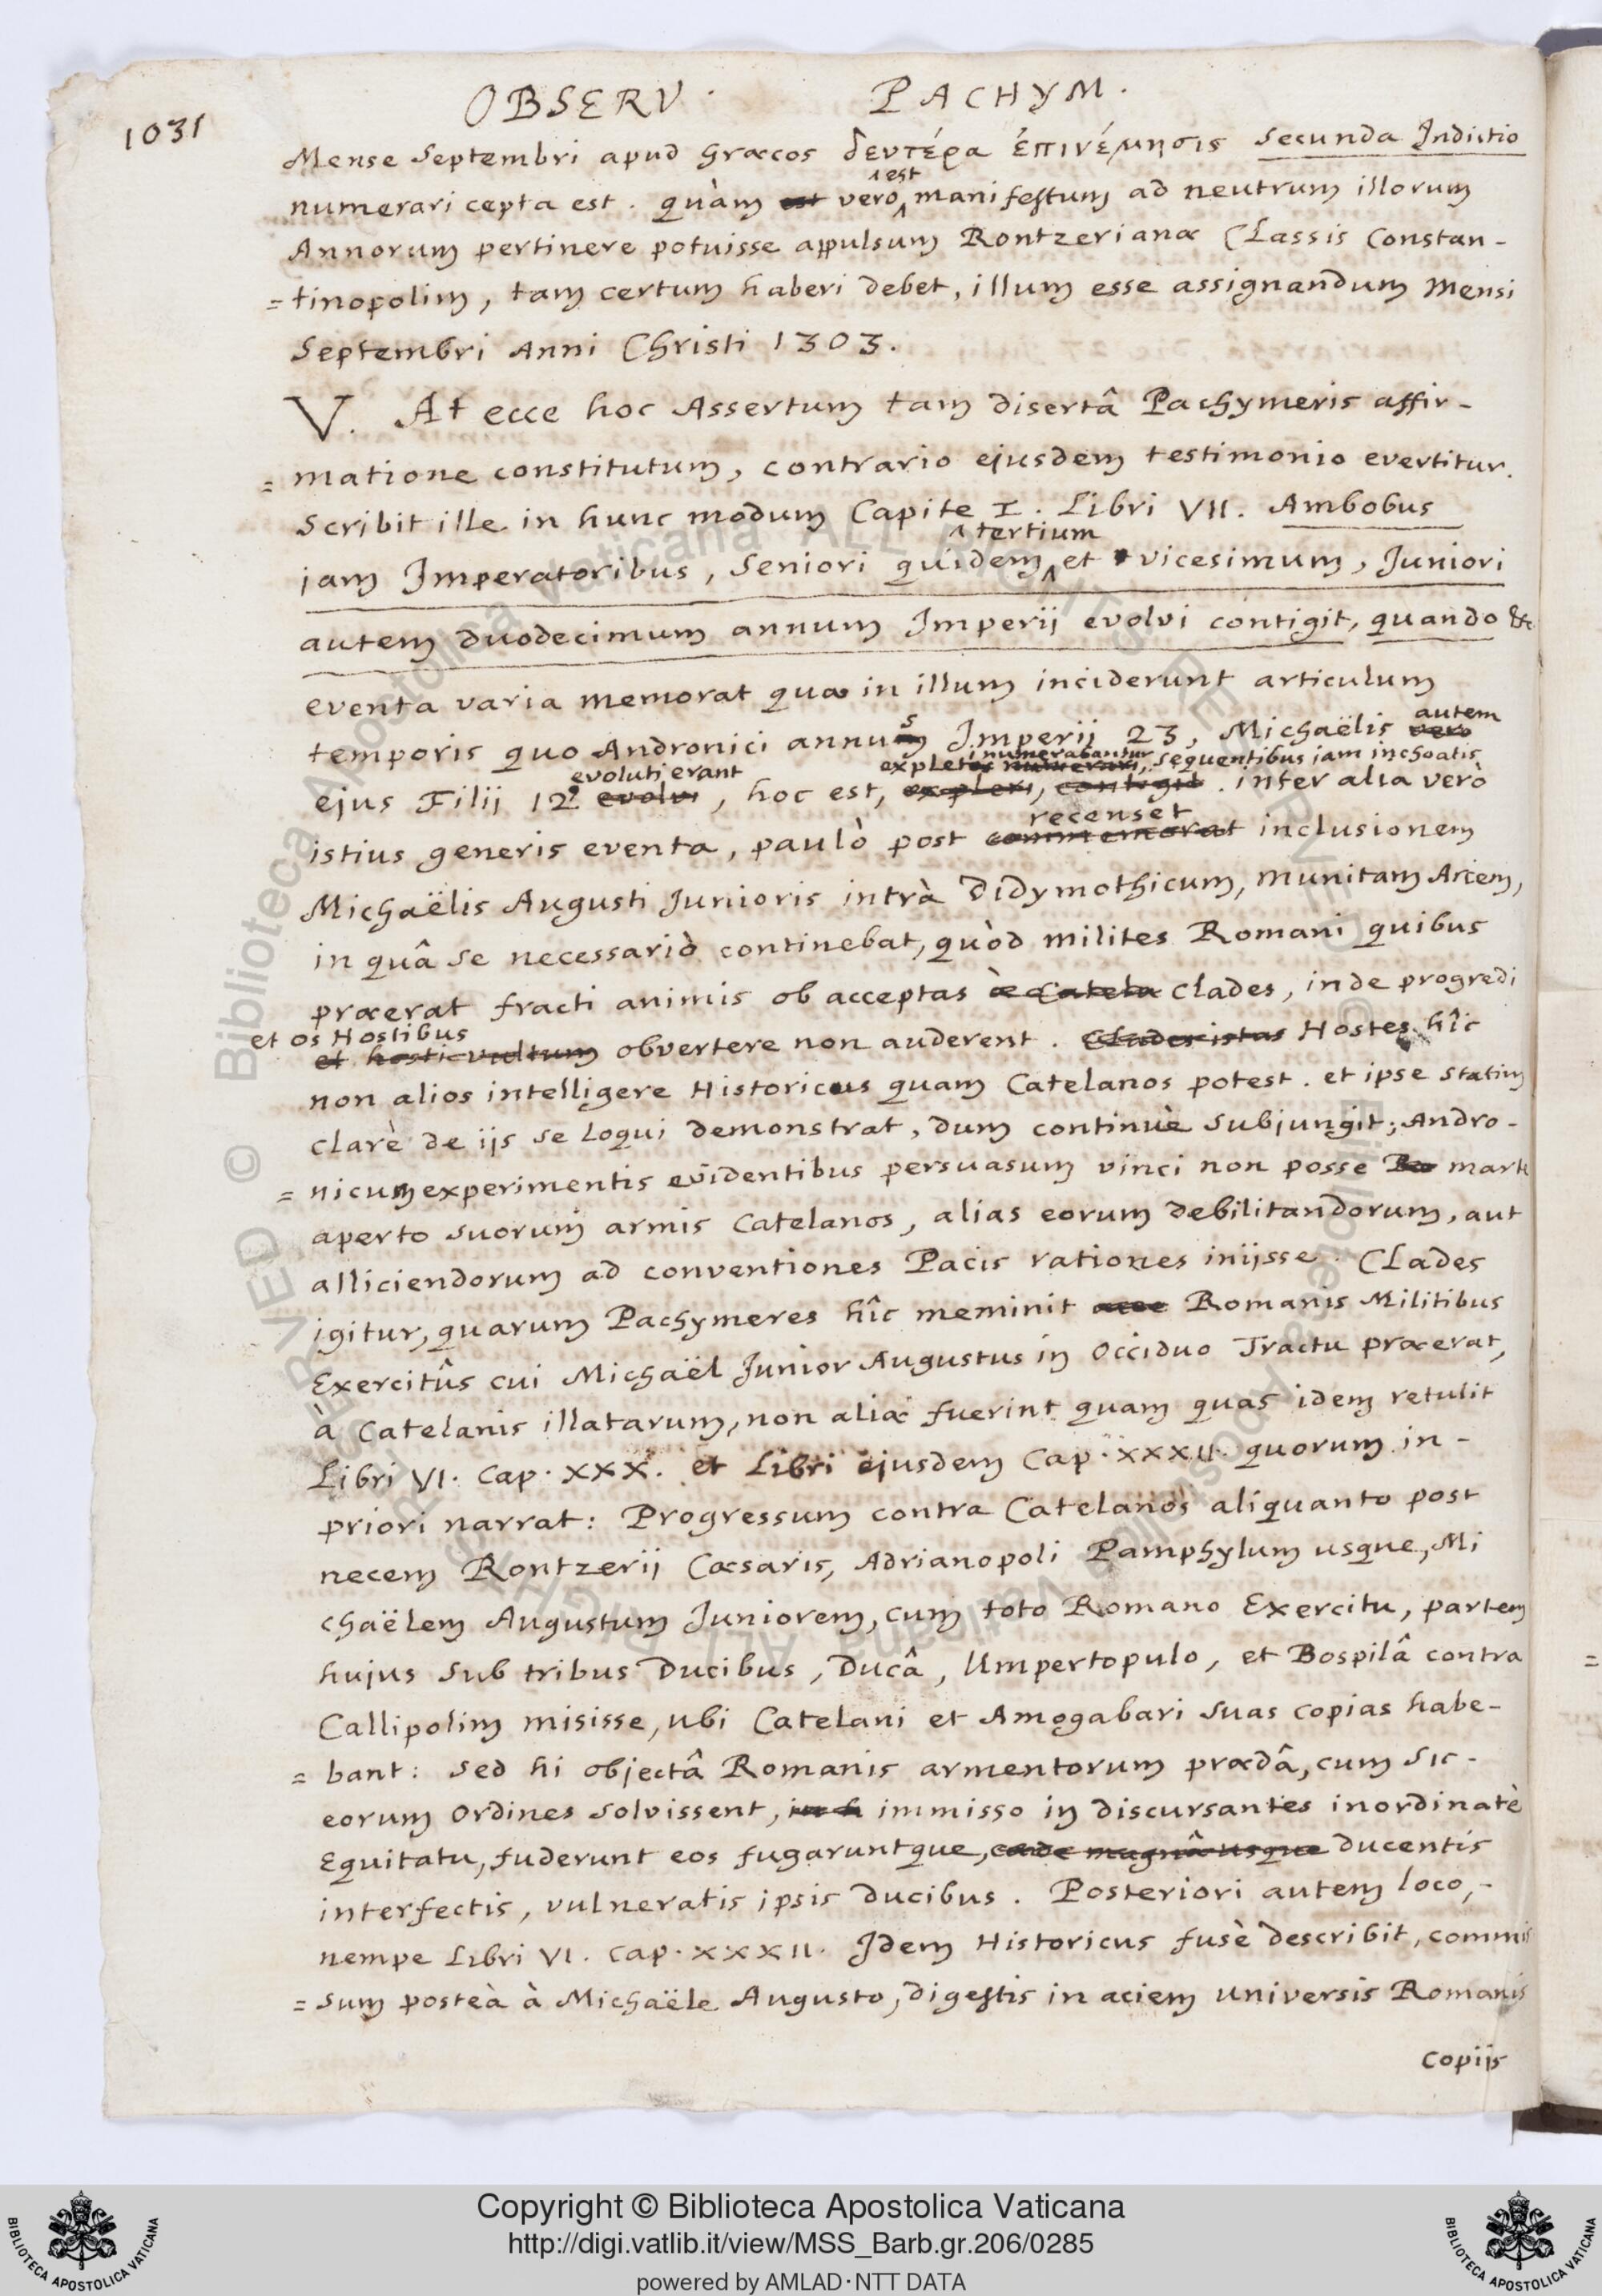 OBSERV. PACHYM.
1031
Mense Septembri apud Græcos δευτέρα ἐπινέμησις Secunda Indictio
numerari cepta est. quàm est verò ^est manifestum ad neutrum illorum
Annorum pertinere potuisse appulsum Rontzerianæ Classis Constan-
=tinopolim, tam certum haberi debet, illum esse assignandum Mensi
Septembri Anni Christi 1303.
V. At ecce hoc Assertum tam disertâ Pachymeris affir-
=matione constitutum, contrario ejusdem testimonio evertitur.
Scribit ille in hunc modum Capite I. Libri VII. Ambobus
^tertium
jam Imperatoribus, Seniori quidem ^ et vicesimum, Juniori
autem duodecimum annum Imperij evolvi contigit, quando &c
eventa varia memorat quæ in illum inciderunt articulum
temporis quo Andronici annus Imperij 23, Michaëlis vero autem
evoluti erant expletus numerabantur, sequentibus jam inchoatis
ejus Filij 12 evolvi, hoc est, expleri, contigit. inter alia verò
recenset
istius generis eventa, paulò post commemorat inclusionem
Michaëlis Augusti Junioris intrà Didymothicum, munitam Arcem,
in quâ se necessariò continebat, quòd milites Romani quibus
præerat fracti animis ob acceptas à Catela clades, inde progredi
et os Hostibus
et hosti vultum obvertere non auderent. Clades istas Hostes hîc
non alios intelligere Historicus quam Catelanos potest. et ipse statim
clarè de ijs se loqui demonstrat, dum continuè subjungit; Andro-
=nicum experimentis evidentibus persuasum vinci non posse Ro marte
aperto suorum armis Catelanos, alias eorum debilitandorum, aut
alliciendorum ad conventiones Pacis rationes inijsse. Clades
igitur, quarum Pachymeres hîc meminit Romanis Militibus
Exercitûs cui Michaël Junior Augustus in Occiduo Tractu præerat,
à Catelanis illatarum, non aliæ fuerint quam quas idem retulit
Libri VI. Cap. XXX. et Libri ejusdem Cap. XXXII. quorum in-
priori narrat: Progressum contra Catelanos aliquanto post
necem Rontzerij Cæsaris, Adrianopoli Pamphylum usque, Mi
chaëlem Augustum Juniorem, cum toto Romano Exercitu, partem
hujus sub tribus Ducibus, Ducâ, Umpertopulo, et Bospilâ contra
Callipolim misisse, ubi Catelani et Amogabari suas copias habe-
=bant: sed hi objectâ Romanis armentorum prædâ, cum sic-
eorum ordines solvissent, in h immisso in discursantes inordinatè
Equitatu, fuderunt eos fugaruntque, cæde magnâ usque ducentis
interfectis, vulneratis ipsis ducibus. Posteriori autem loco,-
nempe Libri VI. Cap. XXXII. Idem Historicus fusè describit, commis
=sum posteà à Michaële Augusto, digestis in aciem universis Romanis
copijs
Copyright © Biblioteca Apostolica Vaticana
http://digi.vatlib.it/view/MSS_Barb.gr.206/0285
powered by AMLAD·NTT DATA
BIBLIOTECA APOSTOLICA VATICANA
BIBLIOTECA APOSTOLICA VATICANA